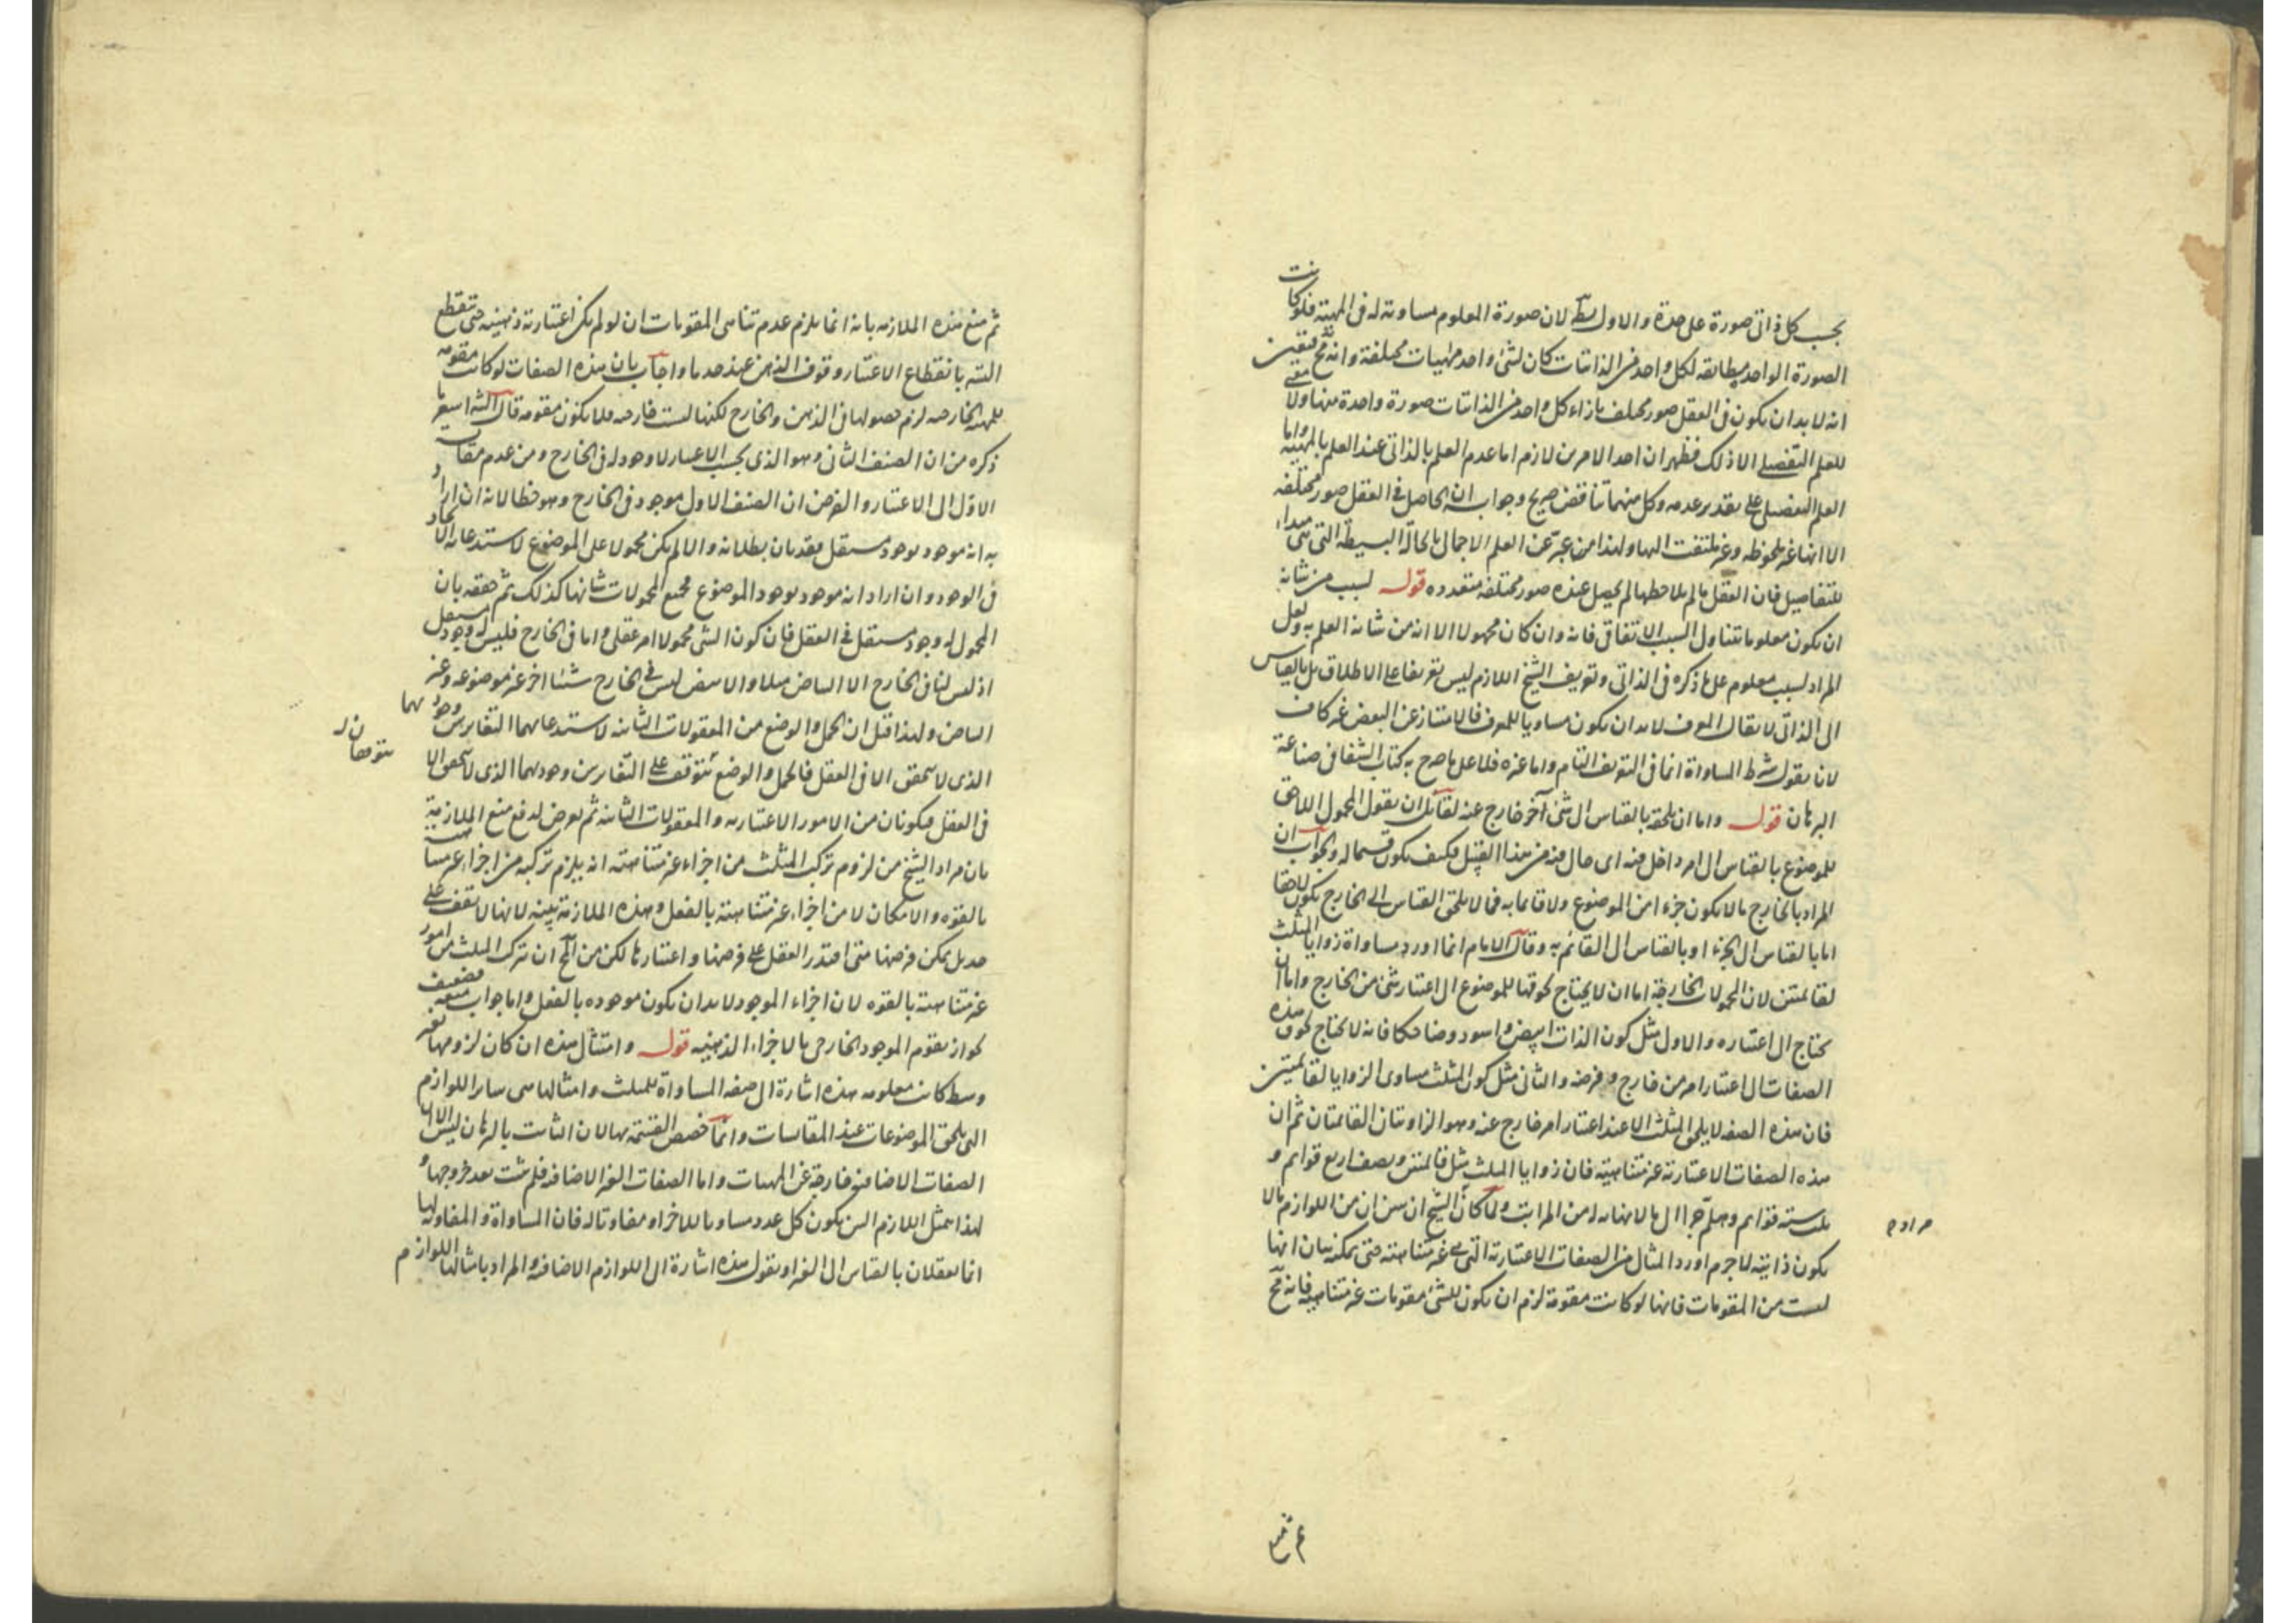 بحسب كل ذاتي صورة على حدة والاول بط لان صورة المعلوم مساوية له في المهية فلو كانت
الصورة الواحدة مطابقة لكل واحد من الذاتيات كان لشئ واحد مهيات مختلفة وانه مح فتعين
انه لا بد ان يكون في العقل صور مختلفة بازاء كل واحد من الذاتيات صورة واحدة منها ولا معنى
للعلم التفصيلي الا ذلك فظهر ان احد الامرين لازم اما عدم العلم بالذاتي عند العلم بالمهية واما
العلم التفصيلي على تقدير عدمه وكل منهما تناقض صريح وجوابه ان الحاصل في العقل صور مختلفة
الا انها غير ملحوظة وغير ملتفت اليها ولهذا من عبر عن العلم الاجمالي بالحالة البسيطة التي هي مبداء
للتفاصيل فان العقل ما لم يلاحظها لم يحصل عنده صور مختلفة متعددة قوله لسبب من شانه
ان يكون معلوما يتناول السبب الاتفاقي فانه وان كان مجهولا الا انه من شانه العلم به ولعل
المراد لسبب معلوم على ما ذكره في الذاتي وتعريف الشيخ اللازم ليس تعريفا على الاطلاق بل بالقياس
الى الذاتي لا يقال المعرف لا بد ان يكون مساويا للمعرف فالامتياز عن البعض غير كاف
لانا نقول شرط المساواة انما في التعريف التام واما غيره فلا على ما صرح به كتاب الشفا في صناعة
البرهان قوله واما ان يلحقه بالقياس الى شئ آخر خارج عنه لقائل ان يقول المحمول اللاحق
للموضوع بالقياس الى امر داخل فيه اي حال فيه من هذا القبيل فكيف يكون قسما له والجواب ان
المراد بالخارج ما لا يكون جزءا من الموضوع ولا قائما به فما لا يلحق القياس الى الخارج يكون لاحقا
اما بالقياس الى الجزء او بالقياس الى القائم به وقال الامام انما اورد مساواة زوايا المثلث
لقائمتين لان المحمولات الخارجة اما ان لا يحتاج لحوقها للموضوع الى اعتبار شئ من الخارج واما ان
يحتاج الى اعتباره والاول مثل كون الذات ابيض واسود وضاحكا فانه لا يحتاج لحوق هذه
الصفات الى اعتبار امر من خارج وفرضه والثاني مثل كون المثلث مساوي الزوايا لقائمتين
فان هذه الصفة لا يلحق المثلث الا عند اعتبار امر خارج عنه وهو الزاويتان القائمتان ثم ان
هذه الصفات الاعتبارية غير متناهية فان زوايا المثلث مثل قائمتين ونصف اربع قوائم و
ثلث ستة قوائم وهلم جرا الى ما لا نهاية له من المراتب ولما كان الشيخ ان يبين ان من اللوازم ما لا
مراده
يكون ذاتية لا جرم اورد المثال من الصفات الاعتبارية التي هي غير متناهية حتى يمكنه بيان انها
ليست من المقومات فانها لو كانت مقومة لزم ان يكون للشئ مقومات غير متناهية فانه مح
ثم منع هذه الملازمة بانه انما يلزم عدم تناهي المقومات ان لو لم يكن اعتبارية ذهنية حتى تنقطع
البته بانقطاع الاعتبار وقوف الذهن عند حد ما واجاب بان هذه الصفات لو كانت مقومة
للمهية الخارجية لزم حصولها في الذهن والخارج لكنها ليست خارجية فلا يكون مقومة قال الشه اشعر ما
ذكره من ان الصنف الثاني وهو الذي بحسب الاعتبار لا وجود له في الخارج ومن عدم مقايسة
الاول الى الاعتبار والفرض ان الصنف الاول موجود في الخارج وهو خطا لانه ان اراد
به انه موجود بوجود مستقل فقد بان بطلانه والا لم يكن محمولا على الموضوع لاستدعائه الاتحاد
في الوجود وان اراد انه موجود بوجود الموضوع فجميع المحمولات شانها كذلك ثم حققه بان
المحمول له وجود مستقل في العقل فان كون الشئ محمولا امر عقلي واما في الخارج فليس له وجود مستقل
اذ ليس لنا في الخارج الا البياض مثلا والابيض ليس في الخارج شيئا آخر غير موضوعه وغير
البياض ولهذا قيل ان الحمل والوضع من المعقولات الثانية لاستدعائهما التغاير بين وجوديهما
يتوقفان
الذي لا يتحقق الا في العقل فالحمل والوضع يتوقف على التغاير بين وجوديهما الذي لا يتحقق الا
في العقل فيكونان من الامور الاعتبارية والمعقولات الثانية ثم تعرض لدفع منع الملازمة
بان مراد الشيخ من لزوم تركب المثلث من اجزاء غير متناهية انه يلزم تركبه من اجزاء غير متناهية
بالقوة والامكان لا من اجزاء غير متناهية بالفعل وهذه الملازمة بينة لانها لا تقف على
حد بل يمكن فرضها متى اقتدر العقل على فرضها واعتبارها لكن من المح ان تركب المثلث من امور
غير متناهية بالقوة لان اجزاء الموجود لا بد ان يكون موجودة بالفعل واما جواب منعه فضعيف
لجواز تقوم الموجود الخارجي بالاجزاء الذهنية قوله وامثال هذه ان كان لزومها بغير
وسط كانت معلومة هذه اشارة الى صفة المساواة للمثلث وامثالها هي سائر اللوازم
التي يلحق الموضوعات عند المقايسات وانما خصص القسمة بها لان الثابت بالبرهان ليس الا ان
الصفات الاضافية خارجة عن المهيات واما الصفات الغير الاضافية فلم يثبت بعد خروجها و
لهذا يمثل اللازم البين بكون كل عدد مساويا للاخر او مفاوتا له فان المساواة والمفاوتة
انما يعقلان بالقياس الى الغير او نقول هذه اشارة الى اللوازم الاضافية والمراد بامثالها اللوازم